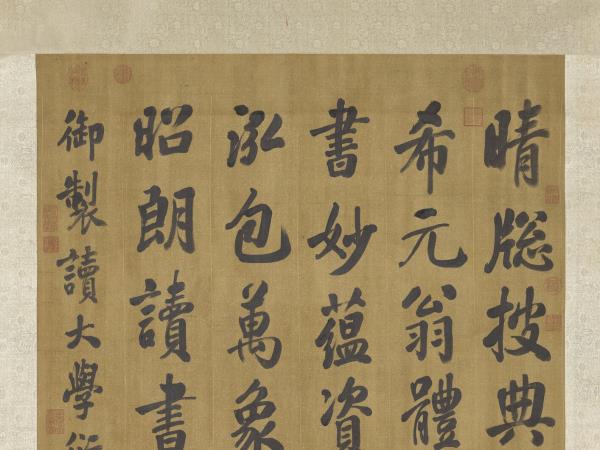 晴牕披典
希元翁體
書妙蘊資
泓包萬象
昭朗讀書
御製讀大學衍